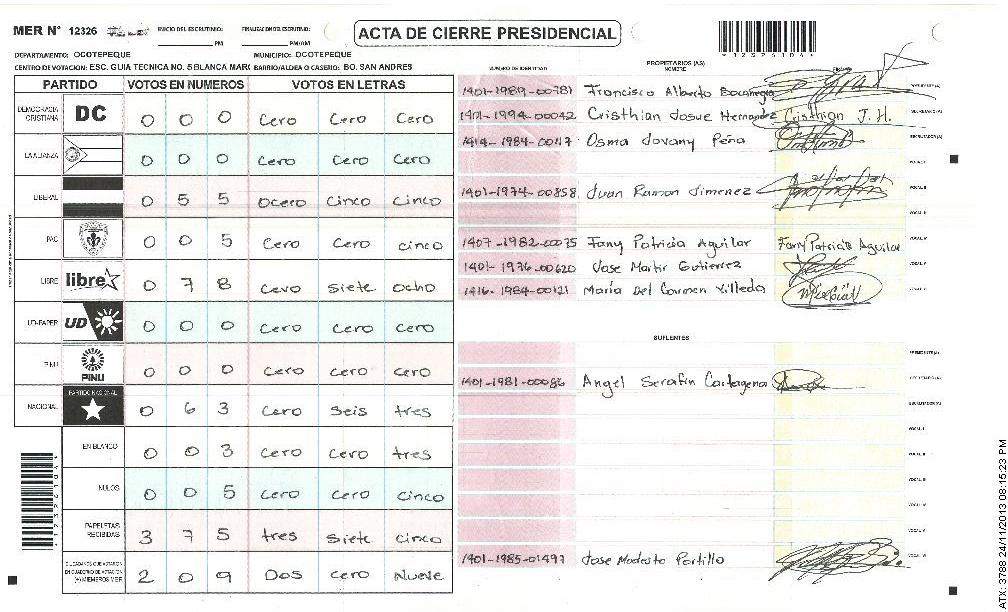 MER N° 12326 INICIO DEL ESCRUTINIO: PM FINALIZACION DEL ESCRUTINIO: PM/AM ACTA DE CIERRE PRESIDENCIAL
DEPARTAMENTO: OCOTEPEQUE MUNICIPIO: OCOTEPEQUE
CENTRO DE VOTACION: ESC. GUIA TECNICA NO. 5 BLANCA MARG BARRIO/ALDEA O CASERIO: BO. SAN ANDRES
PARTIDO VOTOS EN NUMEROS VOTOS EN LETRAS
DEMOCRACIA CRISTIANA DC 0 0 0 Cero Cero Cero
LA ALIANZA 0 0 0 Cero Cero Cero
LIBERAL 0 5 5 Ocero Cinco Cinco
PAC 0 0 5 Cero Cero cinco
LIBRE libre 0 7 8 Cero Siete Ocho
UD-FAPER UD 0 0 0 Cero Cero Cero
PINU PINU 0 0 0 Cero Cero Cero
NACIONAL PARTIDO NACIONAL 0 6 3 Cero Seis tres
EN BLANCO 0 0 3 Cero Cero tres
NULOS 0 0 5 Cero Cero Cinco
PAPELETAS RECIBIDAS 3 7 5 tres Siete Cinco
CIUDADANOS QUE VOTARON EN CUADERNO DE VOTACION (+) MIEMBROS MER 2 0 9 Dos Cero Nueve
NUMERO DE IDENTIDAD PROPIETARIOS (AS) NOMBRE FIRMA
1401-1989-00781 Francisco Alberto Bocanegra PRESIDENTE (A)
1401-1994-00042 Cristhian Josue Hernandez Cristhian J. H. SECRETARIO (A)
1414-1984-00117 Osma Jovany Peña ESCRUTADOR (A)
VOCAL I
1401-1974-00858 Juan Ramon Jimenez VOCAL II
VOCAL III
1407-1982-00075 Fany Patricia Aguilar Fany Patricia Aguilar VOCAL IV
1401-1976-00620 Jose Martir Gutierrez VOCAL V
1416-1984-00121 Maria Del Carmen Villeda
SUPLENTES
PRESIDENTE (A)
1401-1981-00086 Angel Serafin Cartagena SECRETARIO (A)
ESCRUTADOR (A)
VOCAL I
VOCAL II
VOCAL III
VOCAL IV
VOCAL V
1401-1985-01497 Jose Modesto Portillo
ATX: 3788 24/11/2013 08:15:23 PM